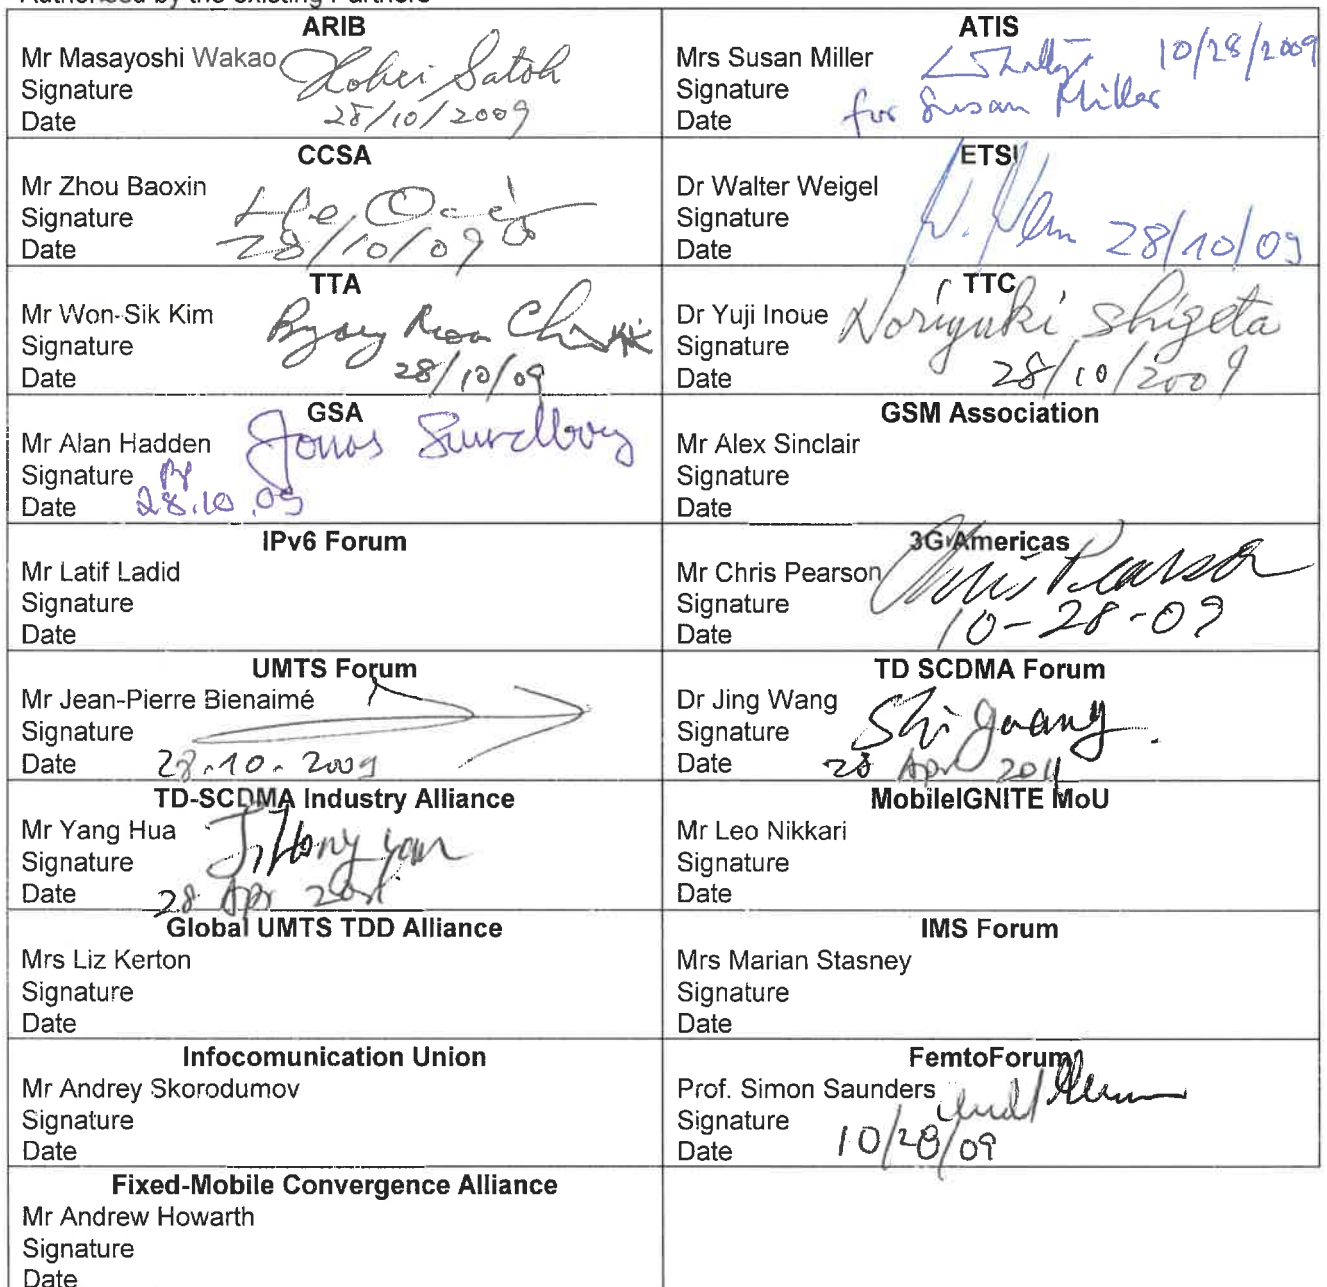 Authorised by the existing Partners
ARIB
Mr Masayoshi Wakao
Signature Kohei Satoh
Date 28/10/2009
ATIS
Mrs Susan Miller 10/28/2009
Signature
for Susan Miller
Date
CCSA
Mr Zhou Baoxin
Signature
Date 28/10/09
ETSI
Dr Walter Weigel
Signature
Date 28/10/09
TTA
Mr Won-Sik Kim
Signature
Date 28/10/09
TTC
Dr Yuji Inoue Noriyuki Shigeta
Signature
Date 28/10/2009
GSA
Mr Alan Hadden Jonas Sundborg
Signature pp
Date 28.10.09
GSM Association
Mr Alex Sinclair
Signature
Date
IPv6 Forum
Mr Latif Ladid
Signature
Date
3G Americas
Mr Chris Pearson Chris Pearson
Signature
Date 10-28-09
UMTS Forum
Mr Jean-Pierre Bienaimé
Signature
Date 28.10.2009
TD SCDMA Forum
Dr Jing Wang
Signature
Date 28 Apr 2011
TD-SCDMA Industry Alliance
Mr Yang Hua
Signature
Date 28 Apr
MobileIGNITE MoU
Mr Leo Nikkari
Signature
Date
Global UMTS TDD Alliance
Mrs Liz Kerton
Signature
Date
IMS Forum
Mrs Marian Stasney
Signature
Date
Infocomunication Union
Mr Andrey Skorodumov
Signature
Date
FemtoForum
Prof. Simon Saunders
Signature
Date 10/28/09
Fixed-Mobile Convergence Alliance
Mr Andrew Howarth
Signature
Date